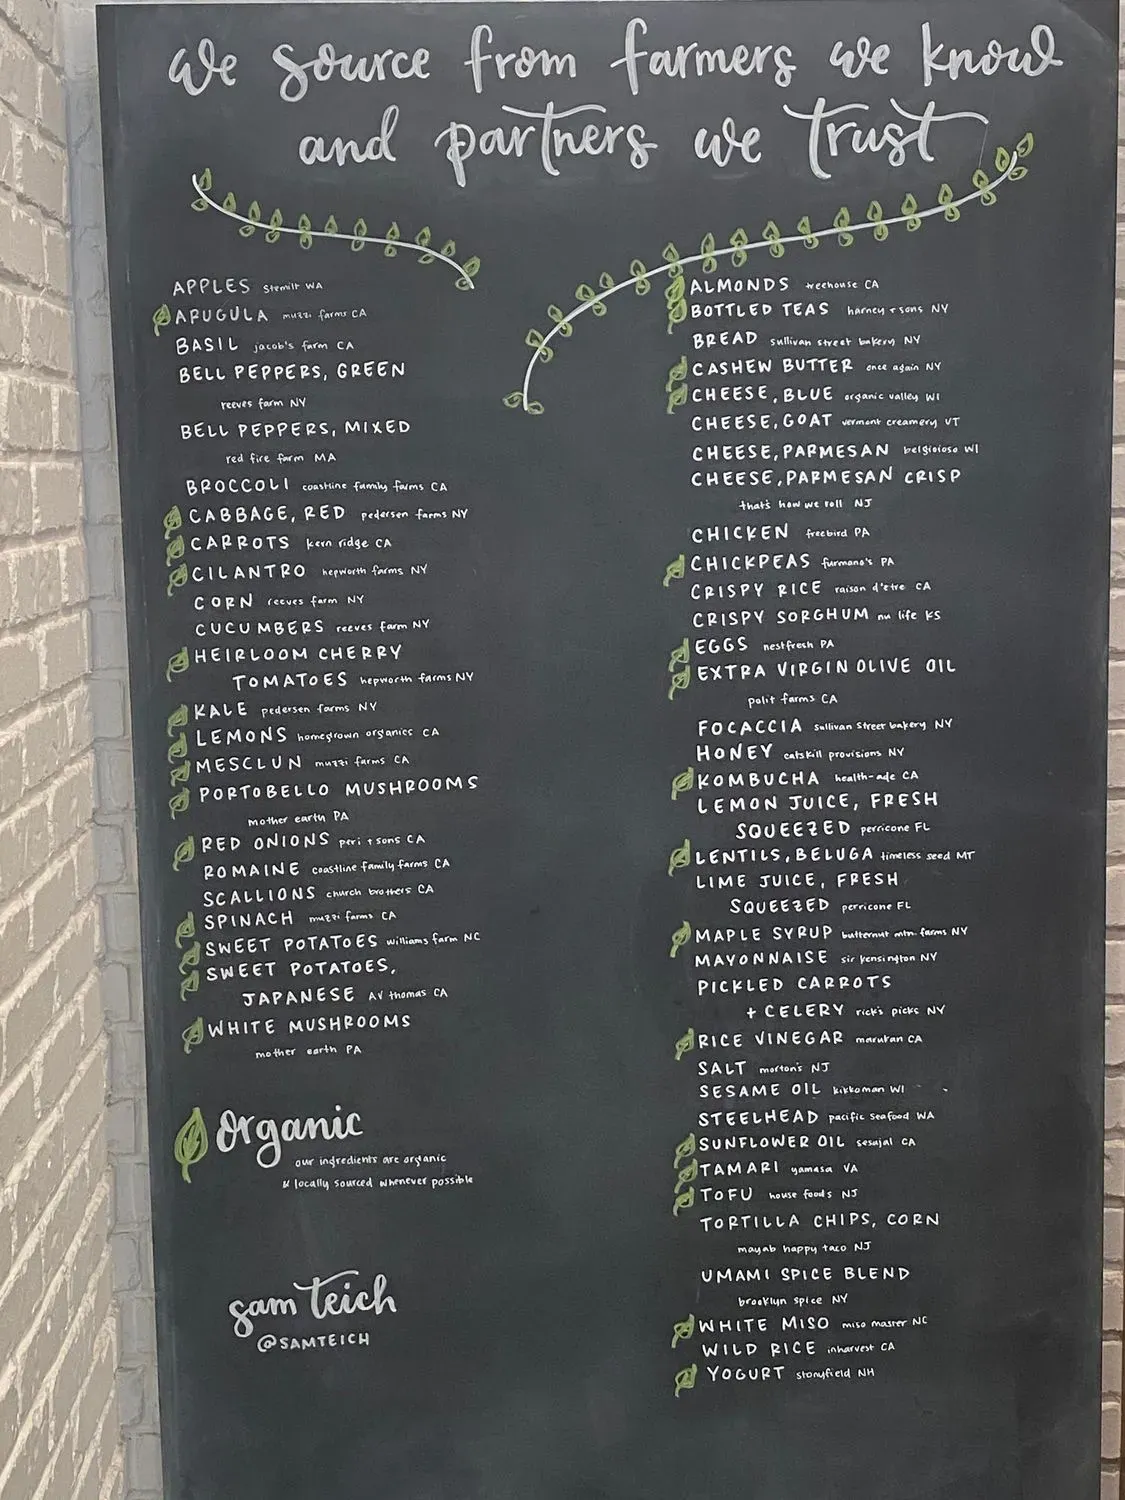 we source from farmers we know
and partners we trust
APPLES Stemilt WA
ARUGULA muzzi farms CA
BASIL jacob's farm CA
BELL PEPPERS, GREEN
reeves farm NY
BELL PEPPERS, MIXED
red fire farm MA
BROCCOLI coastline family farms CA
CABBAGE, RED pedersen farms NY
CARROTS kern ridge CA
CILANTRO hepworth farms NY
CORN reeves farm NY
CUCUMBERS reeves farm NY
HEIRLOOM CHERRY
TOMATOES hepworth farms NY
KALE pedersen farms NY
LEMONS homegrown organics CA
MESCLUN muzzi farms CA
PORTOBELLO MUSHROOMS
mother earth PA
RED ONIONS peri + sons CA
ROMAINE coastline family farms CA
SCALLIONS church brothers CA
SPINACH muzzi farms CA
SWEET POTATOES williams farm NC
SWEET POTATOES,
JAPANESE AV thomas CA
WHITE MUSHROOMS
mother earth PA
organic
our ingredients are organic
& locally sourced whenever possible
sam teich
@SAMTEICH
ALMONDS treehouse CA
BOTTLED TEAS harney + sons NY
BREAD sullivan street bakery NY
CASHEW BUTTER once again NY
CHEESE, BLUE organic valley WI
CHEESE, GOAT vermont creamery VT
CHEESE, PARMESAN belgioioso WI
CHEESE, PARMESAN CRISP
that's how we roll NJ
CHICKEN freebird PA
CHICKPEAS furmano's PA
CRISPY RICE raison d'etre CA
CRISPY SORGHUM nu life KS
EGGS nestfresh PA
EXTRA VIRGIN OLIVE OIL
polit farms CA
FOCACCIA sullivan street bakery NY
HONEY catskill provisions NY
KOMBUCHA health-ade CA
LEMON JUICE, FRESH
SQUEEZED perricone FL
LENTILS, BELUGA timeless seed MT
LIME JUICE, FRESH
SQUEEZED perricone FL
MAPLE SYRUP butternut mtn. farms NY
MAYONNAISE sir kensington NY
PICKLED CARROTS
+ CELERY rick's picks NY
RICE VINEGAR marukan CA
SALT morton's NJ
SESAME OIL kikkoman WI
STEELHEAD pacific seafood WA
SUNFLOWER OIL sesajal CA
TAMARI yamasa VA
TOFU house foods NJ
TORTILLA CHIPS, CORN
mayab happy taco NJ
UMAMI SPICE BLEND
brooklyn spice NY
WHITE MISO miso master NC
WILD RICE inharvest CA
YOGURT stonyfield NH